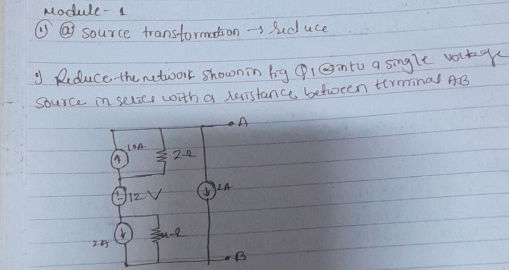 Module - 1
1) a) source transformation → reduce
1) Reduce the network shown in fig Q1 a into a single voltage
source in series with a resistance between terminal AB
A
10A
2Ω
12V
2A
2A
B